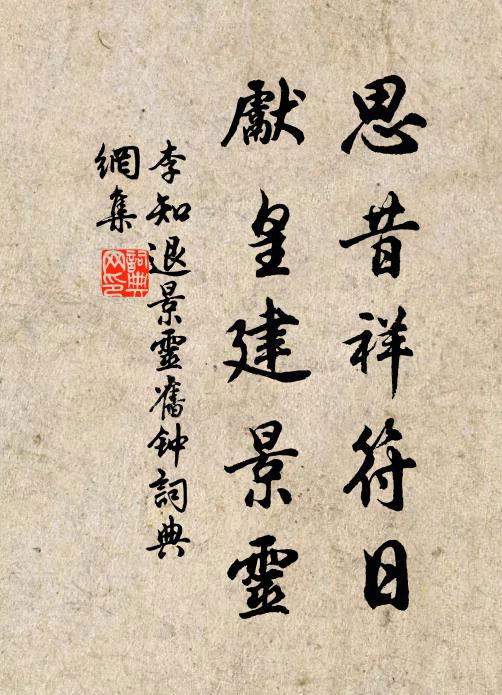 思昔祥符日
獻皇建景靈
李知退景靈舊钟詞典
網集
詞典
网印